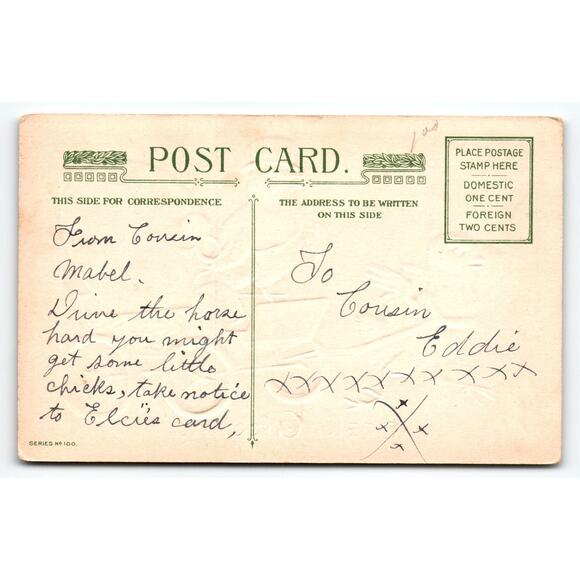 1.00
POST CARD.
THIS SIDE FOR CORRESPONDENCE
THE ADDRESS TO BE WRITTEN
ON THIS SIDE
PLACE POSTAGE
STAMP HERE
DOMESTIC
ONE CENT
FOREIGN
TWO CENTS
From Cousin
Mabel.
Drive the horse
hard you might
get some little
chicks, take notice
to Elcies card,
To
Cousin
Eddie
XXXXXXXXXXX
X
x x x x
SERIES No 100.